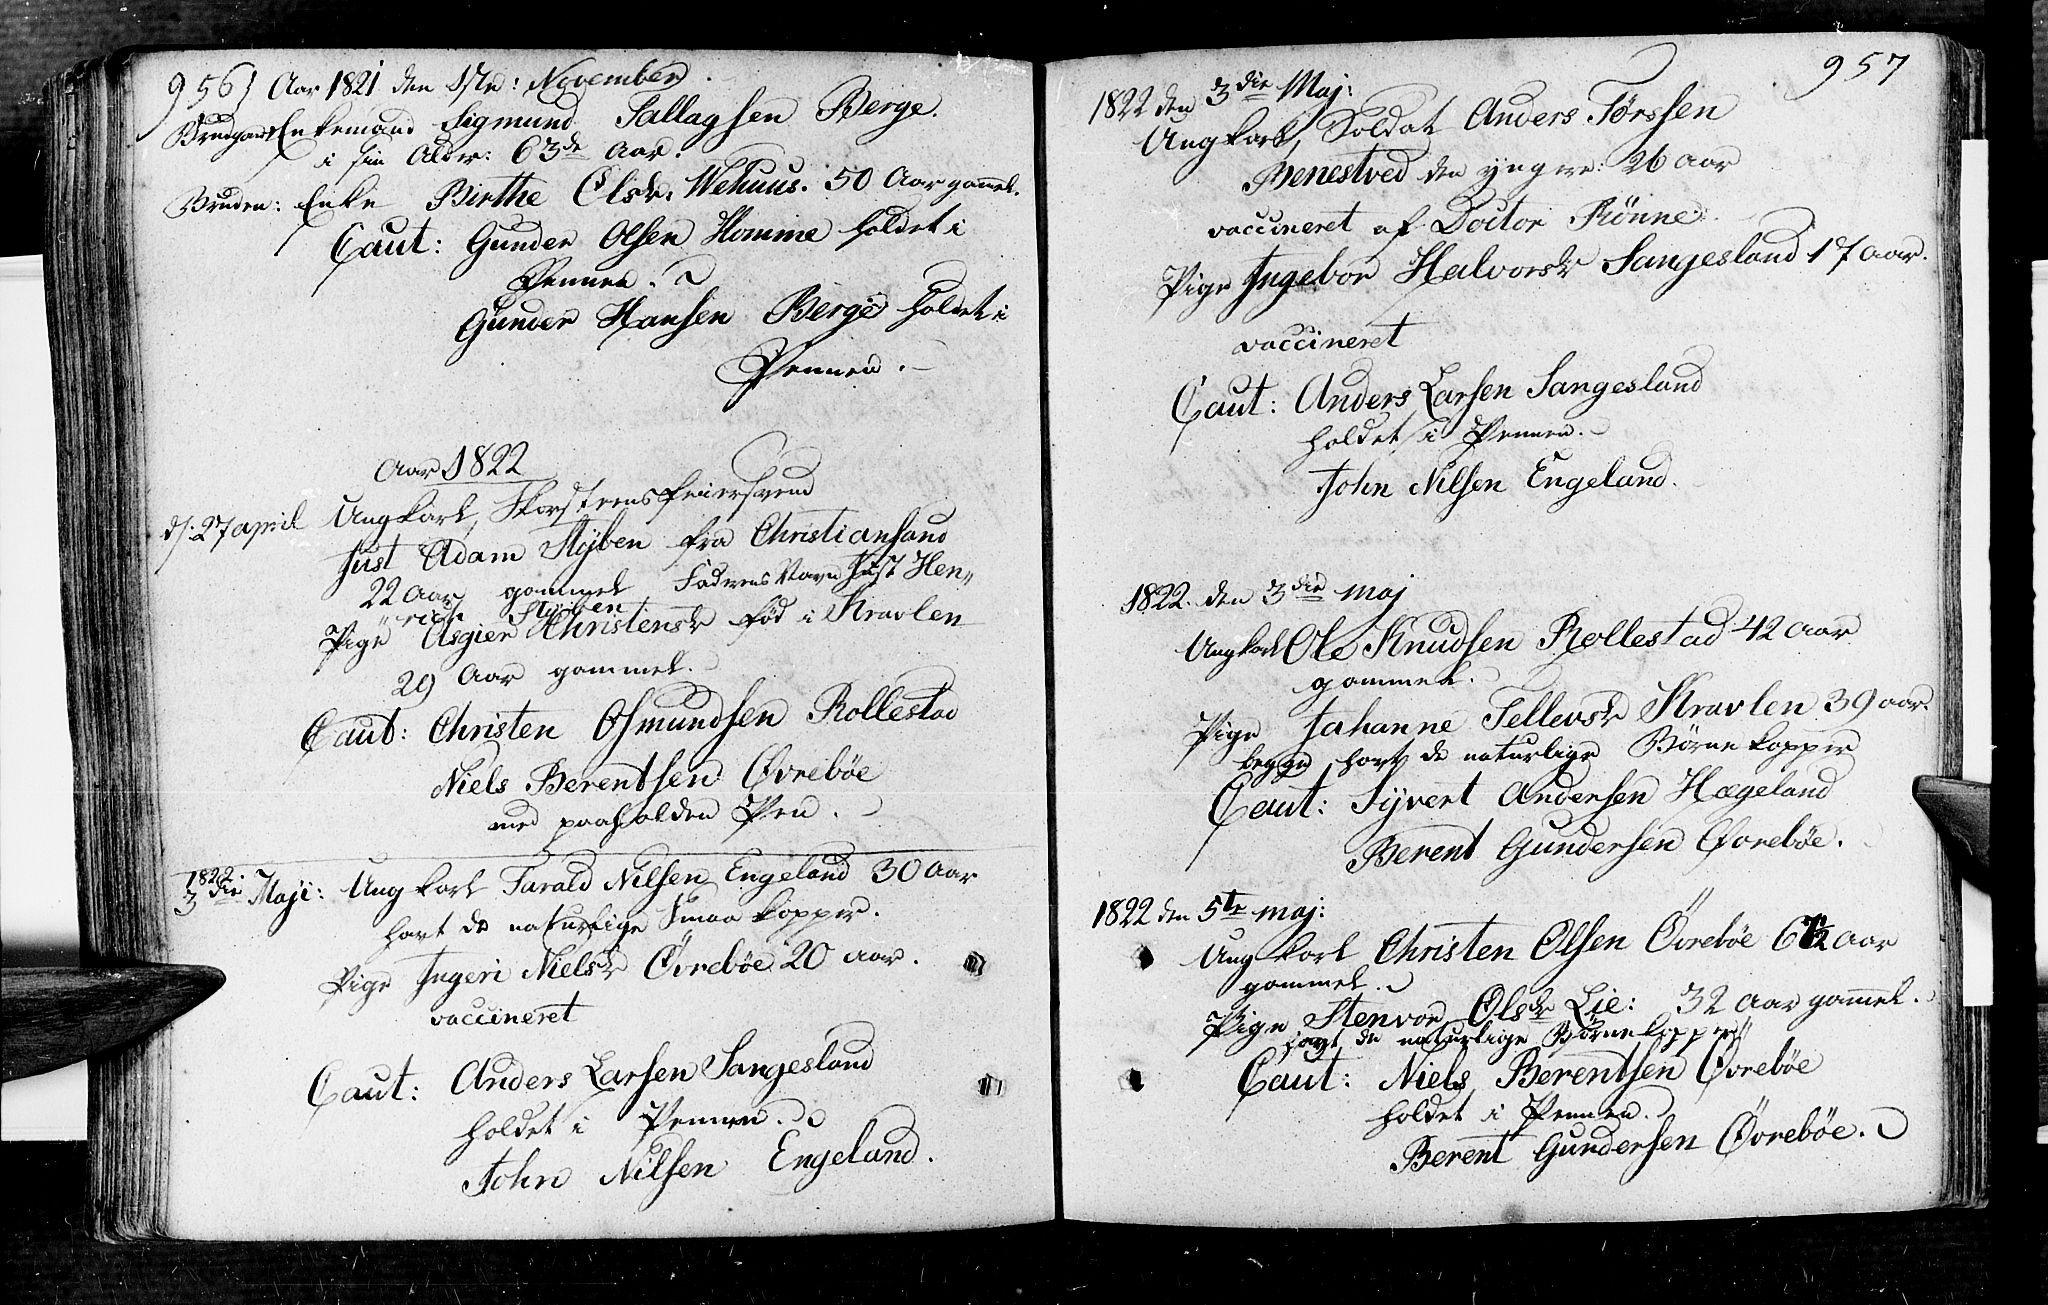 956) Aar 1821 den 17te: November.
Brudgom Enkemand Sigmund Sallagsen Berge.
i sin Alder: 63de Aar.
Bruden: Enke Birthe Olsdr. Wehuus. 50 Aar gamel.
Caut: Gunder Olsen Homme holdet i
Pennen.
Gunder Hansen Berge holdet i
Pennen.
Aar 1822
d: 27 april Ungkarl, Skorsteensfeiersvend
Just Adam Stÿben fra Christiansand
22 Aar gammel Fadrens Navn Just Hen„
„rich Styben
Pige Asgier Christensdr fød i Kravlen
29 Aar gammel.
Caut: Christen Osmundsen Rollestad
Niels Berentsen Øvrebøe
med paaholden Pen.
1822.
3die Maji: Ung karl Tarald Nilsen Engeland 30 Aar
havt de naturlige Smaa kopper.
Pige Ingeri Nielsdr Øvrebøe 20 aar.
vaccineret
Caut: Anders Larsen Sangesland
holdet i Pennen.
John Nilsen Engeland.
957
1822 den 3die Maj:
Ungkarl, Soldat Anders Tørssen
Benestved den yngre: 26 aar
vaccineret af Doctor Rønne.
Pige Ingebor Halvorsdr Sangesland 17 aar.
vaccineret
Caut: Anders Larsen Sangesland
holdet i Pennen.
John Nilsen Engeland.
1822. den 3die maj
Ungkarl Ole Knudsen Rollestad 42 aar
gammel.
Pige Johanne Tellevsdr Kravlen 39 aar.
begge havt de naturlige Børne kopper
Caut: Syvert Andersen Hægeland
Berent Gundersen Øvrebøe.
1822 den 5te maj:
Ung karl Christen Olsen Øvrebøe aar
gammel.
Pige Stenvor Olsdr Lie: 32 aar gamel.
havt de naturlige Børnekopper
Caut: Niels Berentsen Øvrebøe
holdet i Pennen.
Berent Gundersen Øvrebøe.